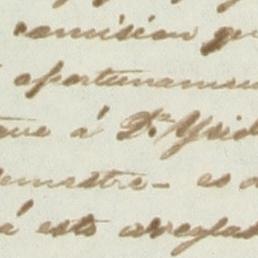 comision qu
oportunamen
á Dn. Ysid
emestre - es
á esto arregla